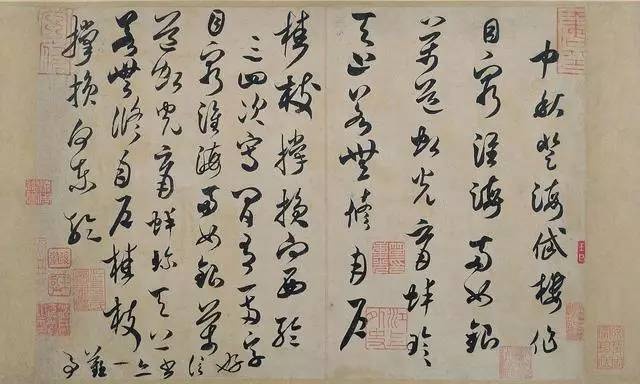 中秋登海岱樓作
目窮淮海兩如銀
萬道虹光育蚌珍
天上若無修月戶
桂枝撐損向西輪
三四次寫間有一兩字好
信書亦一難事
目窮淮海兩如銀萬
道虹光育蚌珍天上
若無修月戶桂枝
撐損向東輪